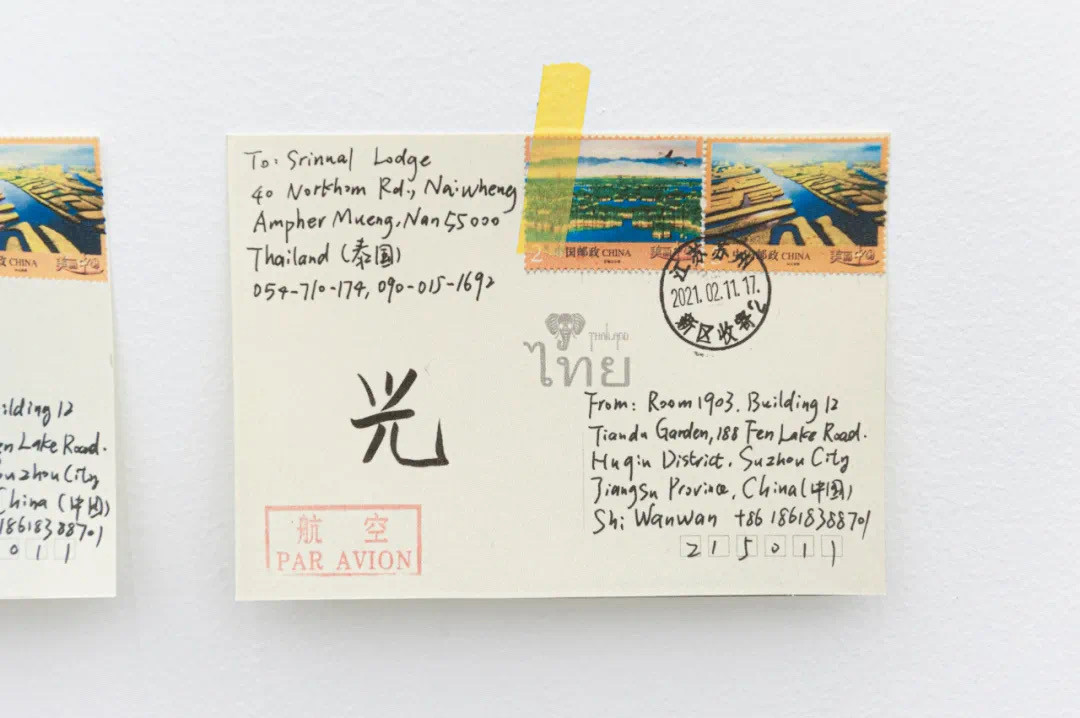 To: Srinual Lodge
40 Norkham Rd., Nai wheng
Ampher Mueng, Nan 55000
Thailand (泰国)
054-710-174, 090-015-1692
中国邮政 CHINA
中国邮政 CHINA
美丽中国
江苏苏州
2021.02.11.17.
新区收寄
THAILAND
ไทย
光
航 空
PAR AVION
From: Room 1903. Building 12
Tiandu Garden, 188 Fen Lake Road.
Huqiu District. Suzhou City
Jiangsu Province, China (中国)
Shi Wanwan +86 18618388701
215011
CHINA
美丽中国
ilding 12
en Lake Road.
uzhou City
China (中国)
18618388701
011